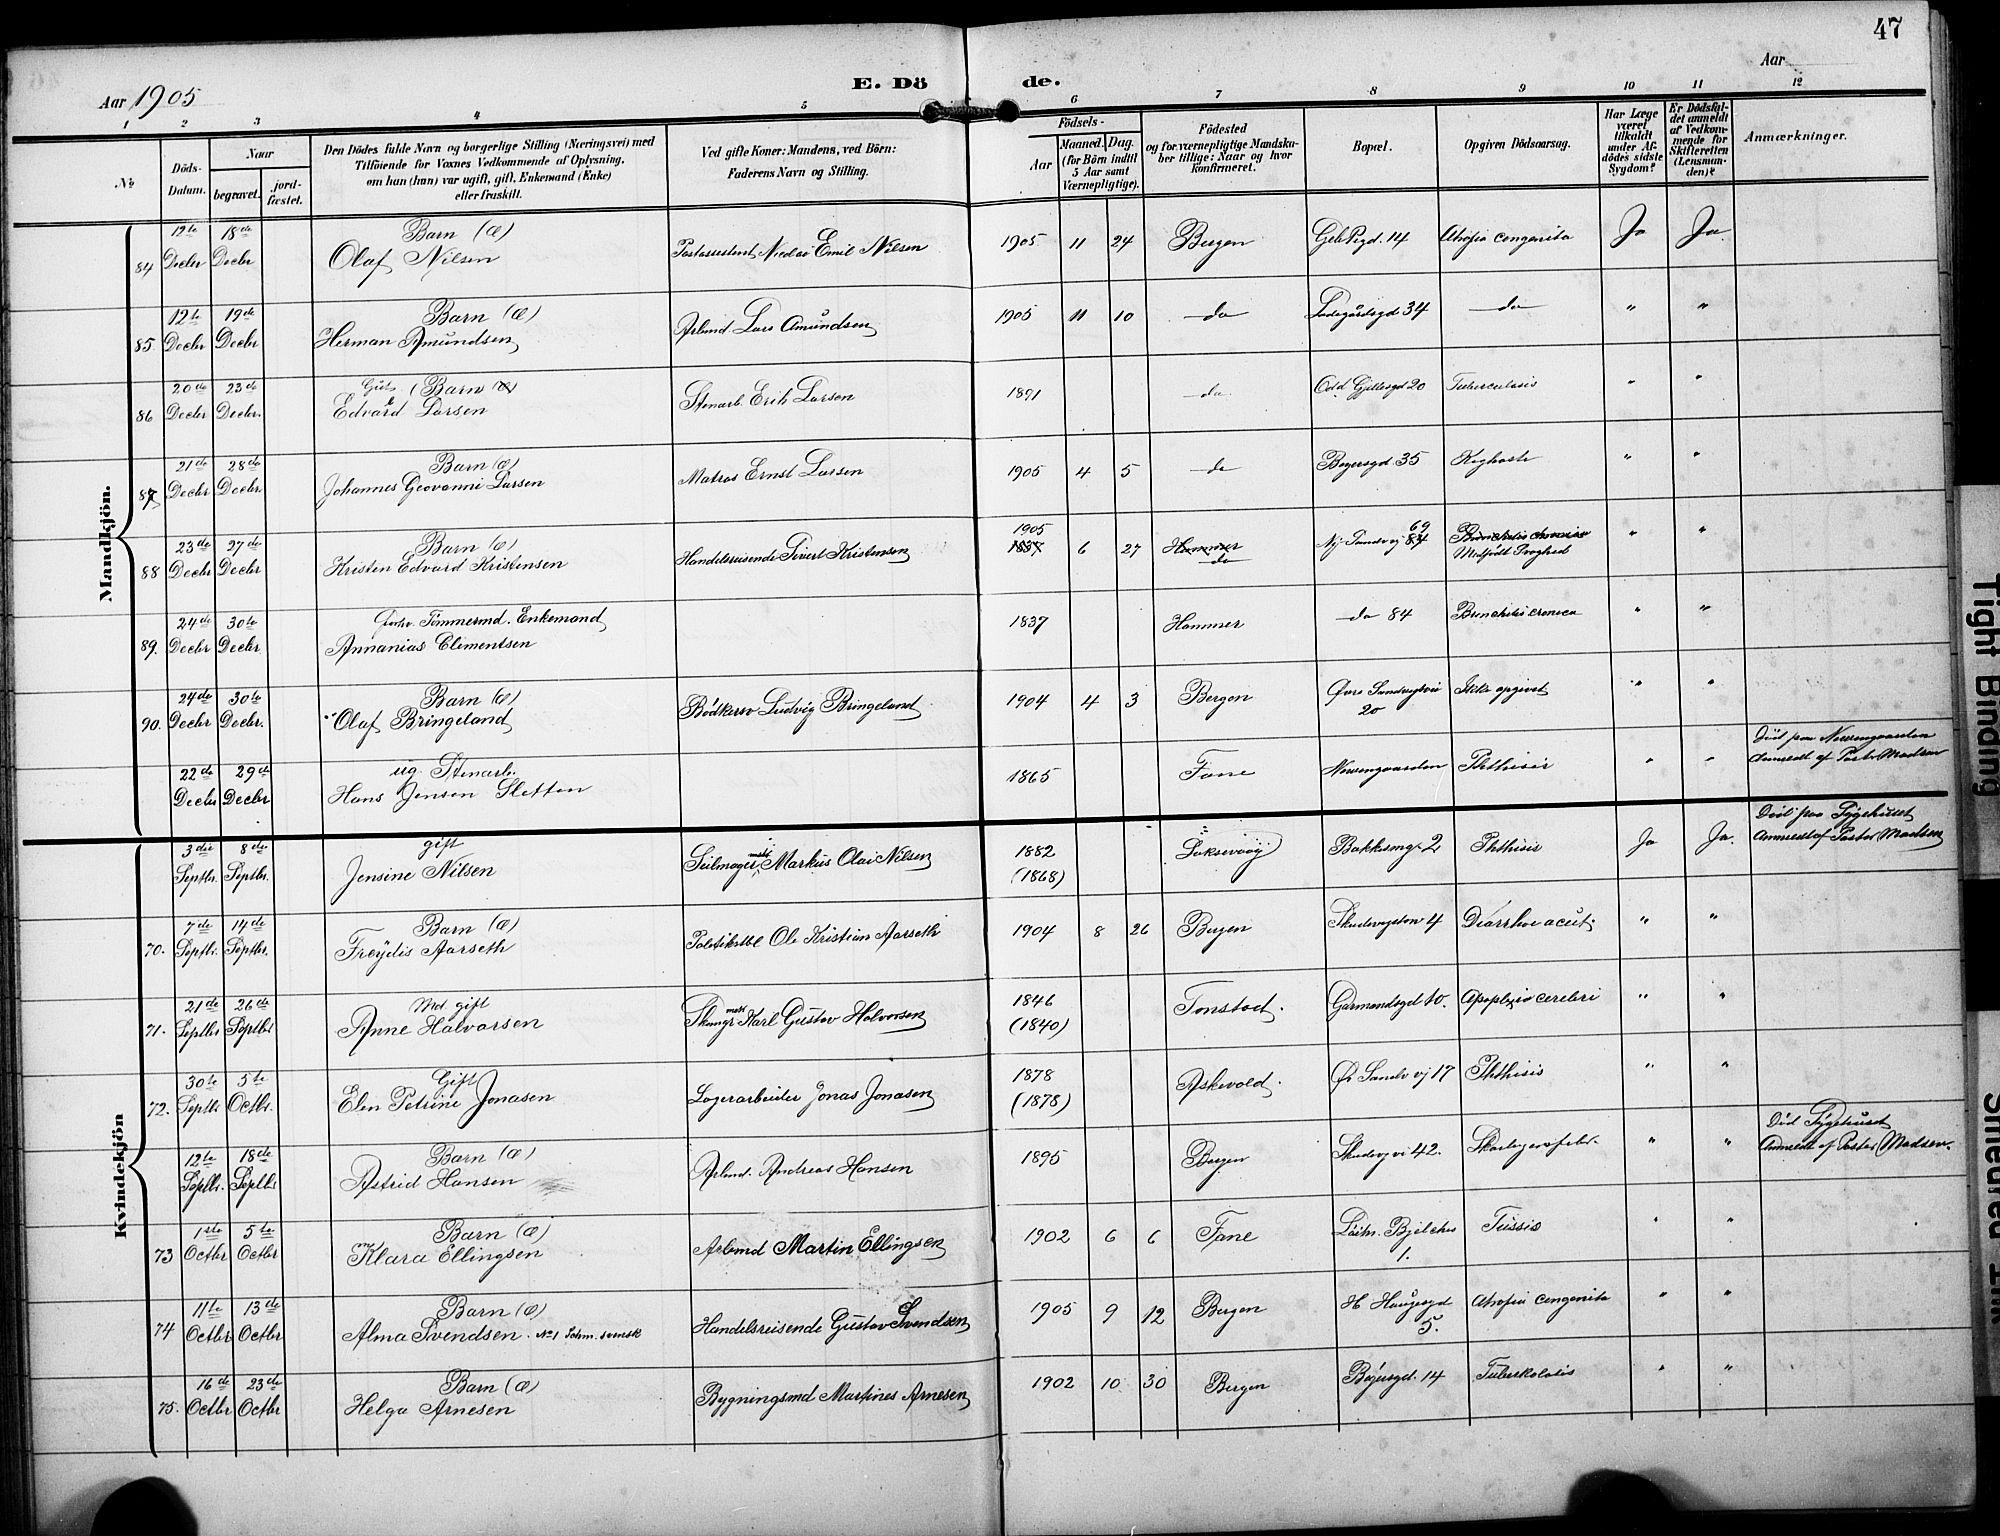 47
Aar 1905
E. Dö de.
Aar
1 2 3 4 5 6 7 8 9 10 11 12
No.
Döds-Datum.
Naar
begravet. jord-fæstet.
Den Dödes fulde Navn og borgerlige Stilling (Næringsvei) med
Tilföiende for Voxnes Vedkommende af Oplysning,
om han (hun) var ugift, gift, Enkemand (Enke)
eller fraskilt.
Ved gifte Koner: Mandens, ved Börn:
Faderens Navn og Stilling.
Födsels-
Aar
Maaned. Dag.
(for Börn indtil
5 Aar samt
Værnepligtige).
Födested
og for værnepligtige Mandska-
ber tillige: Naar og hvor
konfirmeret.
Bopæl.
Opgiven Dödsaarsag.
Har Læge
været
tilkaldt
under Af-
dödes sidste
Sygdom?
Er Dödsfal-
det anmeldt
af Vedkom-
mende for
Skifteretten
(Lensman-
den)?
Anmærkninger.
Mandkjön.
12te 18de Barn (Æ)
84 Decbr Decbr Olaf Nilsen Postassistent Nicolai Emil Nilsen 1905 11 24 Bergen 14 Atrofia congenita Ja Ja
12te 19de Barn (Æ)
85. Decbr Decbr Herman Amundsen Arbmd Lars Amundsen 1905 11 10 do Ladegårdsgd 34 do " "
20de 23de Gut (Barn Æ)
86 Decbr Decbr. Edvard Larsen Stenarb. Erik Larsen 1891 do Odd Gjellesgd 20 Tuberculosis " "
21de 28de Barn (Æ)
87 Decbr Decbr Johannes Geovanni Larsen Matros Ernst Larsen 1905 4 5 do Bøyersgd 35 Kighoste " "
23de 27de Barn (Æ) 1905 69
88 Decbr Decbr Kristen Edvard Kristensen Handelsreisende Sivert Kristensen 1837 6 27 Hammer do Ny Sandv vj 84 Bronchitis chronica Medfødt Svaghed " "
24de 30te Tømmermd. Enkemand
89. Decbr Decbr. Annanias Clementsen 1837 Hammer do 84 Bronchitis cronica " "
24de 30te Barn (Æ)
90. Decbr Decbr. Olaf Bringeland Bødkersv Ludvig Bringeland 1904 4 3 Bergen Øvre Sandvigsvei 20 Ikke opgivet " "
22de 29de ug. Stenarb.
Decbr Decbr Hans Jensen Sletten 1865 Fane Phthisis " " Død paa
Anmeldt af Pastor Madsen
Kvindekjön
3die 8de gift
Septbr. Septbr. Jensine Nilsen Seilmager mstr Markus Olai Nilsen 1882 (1868) Bakksmg. 2 Phthisis Ja Ja. Død paa Sygehuset
Anmeldt af Pastor Madsen
7de 14de Barn (Æ)
70. Septbr. Septbr. Freydis Aarseth Politikstbl Ole Kristian Aarseth 1904 8 26 Bergen Skudevigston 4 Diarrhoe acut. " "
21de 26de Md. gift
71. Septbr Septbr Anne Halvorsen Skomgr mstr Karl Gustav Halvorsen 1846 (1840) Tonstad. Garmandsgd 10. Apoplexia cerebri " "
30te 5te Gift
72. Septbr Octbr. Elen Petrine Jonasen Lagerarbeider Jonas Jonasen 1878 (1878) Askevold. Øv Sandv vj 17 Phthisis " "
12te 18de Barn (Æ)
Septbr. Septbr Astrid Hansen Arbmd. Andreas Hansen 1895 Bergen Skudevg vi 42. Skarlagensfebr. " " Død Sygehuset
Anmeldt af Pastor Madsen.
1ste 5te Barn (Æ)
73 Octbr Octbr Klara Ellingsen Arbmd Martin Ellingsen 1902 6 6 Fane 1. Tussis " "
11te 13de Barn (Æ)
74 Octbr Octbr Alma Svendsen. Handelsreisende Gustav Svendsen 1905 9 12 Bergen H Haugesgd 5. Atrofia congenita " "
16de 23de Barn (Æ)
75. Octbr Octbr Helga Arnesen Bygningsmd Martines Arnesen 1902 10 30 Bergen Bøyersgd. 14 Tuberkolosis " "
Tight Binding
Smeared Ink